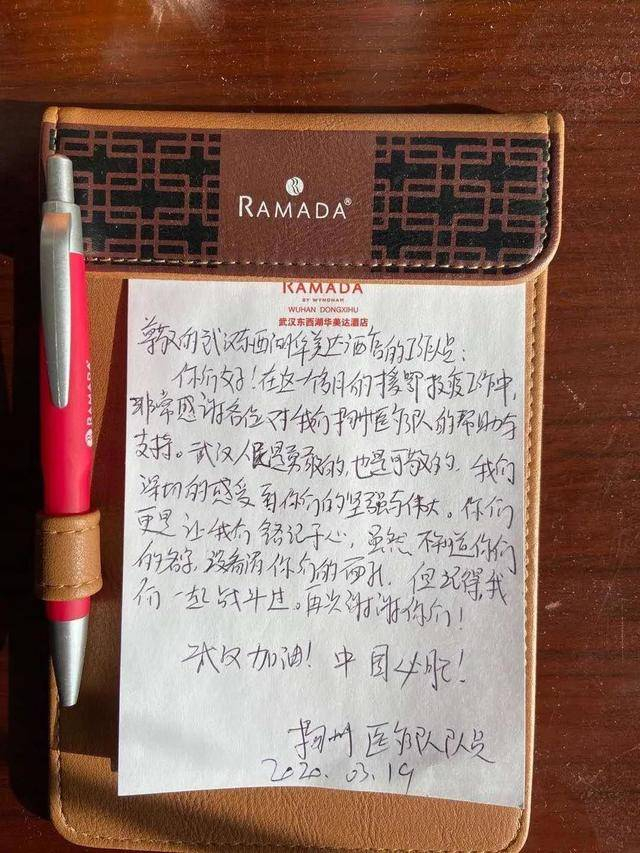 RAMADA®
RAMADA
RAMADA
BY WYNDHAM
WUHAN DONGXIHU
武汉东西湖华美达酒店
尊敬的武汉东西湖华美达酒店的工作人员:
你们好!在这一个多月的援鄂抗疫工作中,
非常感谢各位对我们扬州医疗队的帮助与
支持。武汉人民是勇敢的,也是可敬的,我们
深切的感受到你们的坚强与伟大。你们
更是让我们铭记于心,虽然不知道你们
的名字,没看清你们的面孔,但记得我
们一起战斗过。再次谢谢你们!
武汉加油!中国必胜!
扬州医疗队队员
2020.03.19